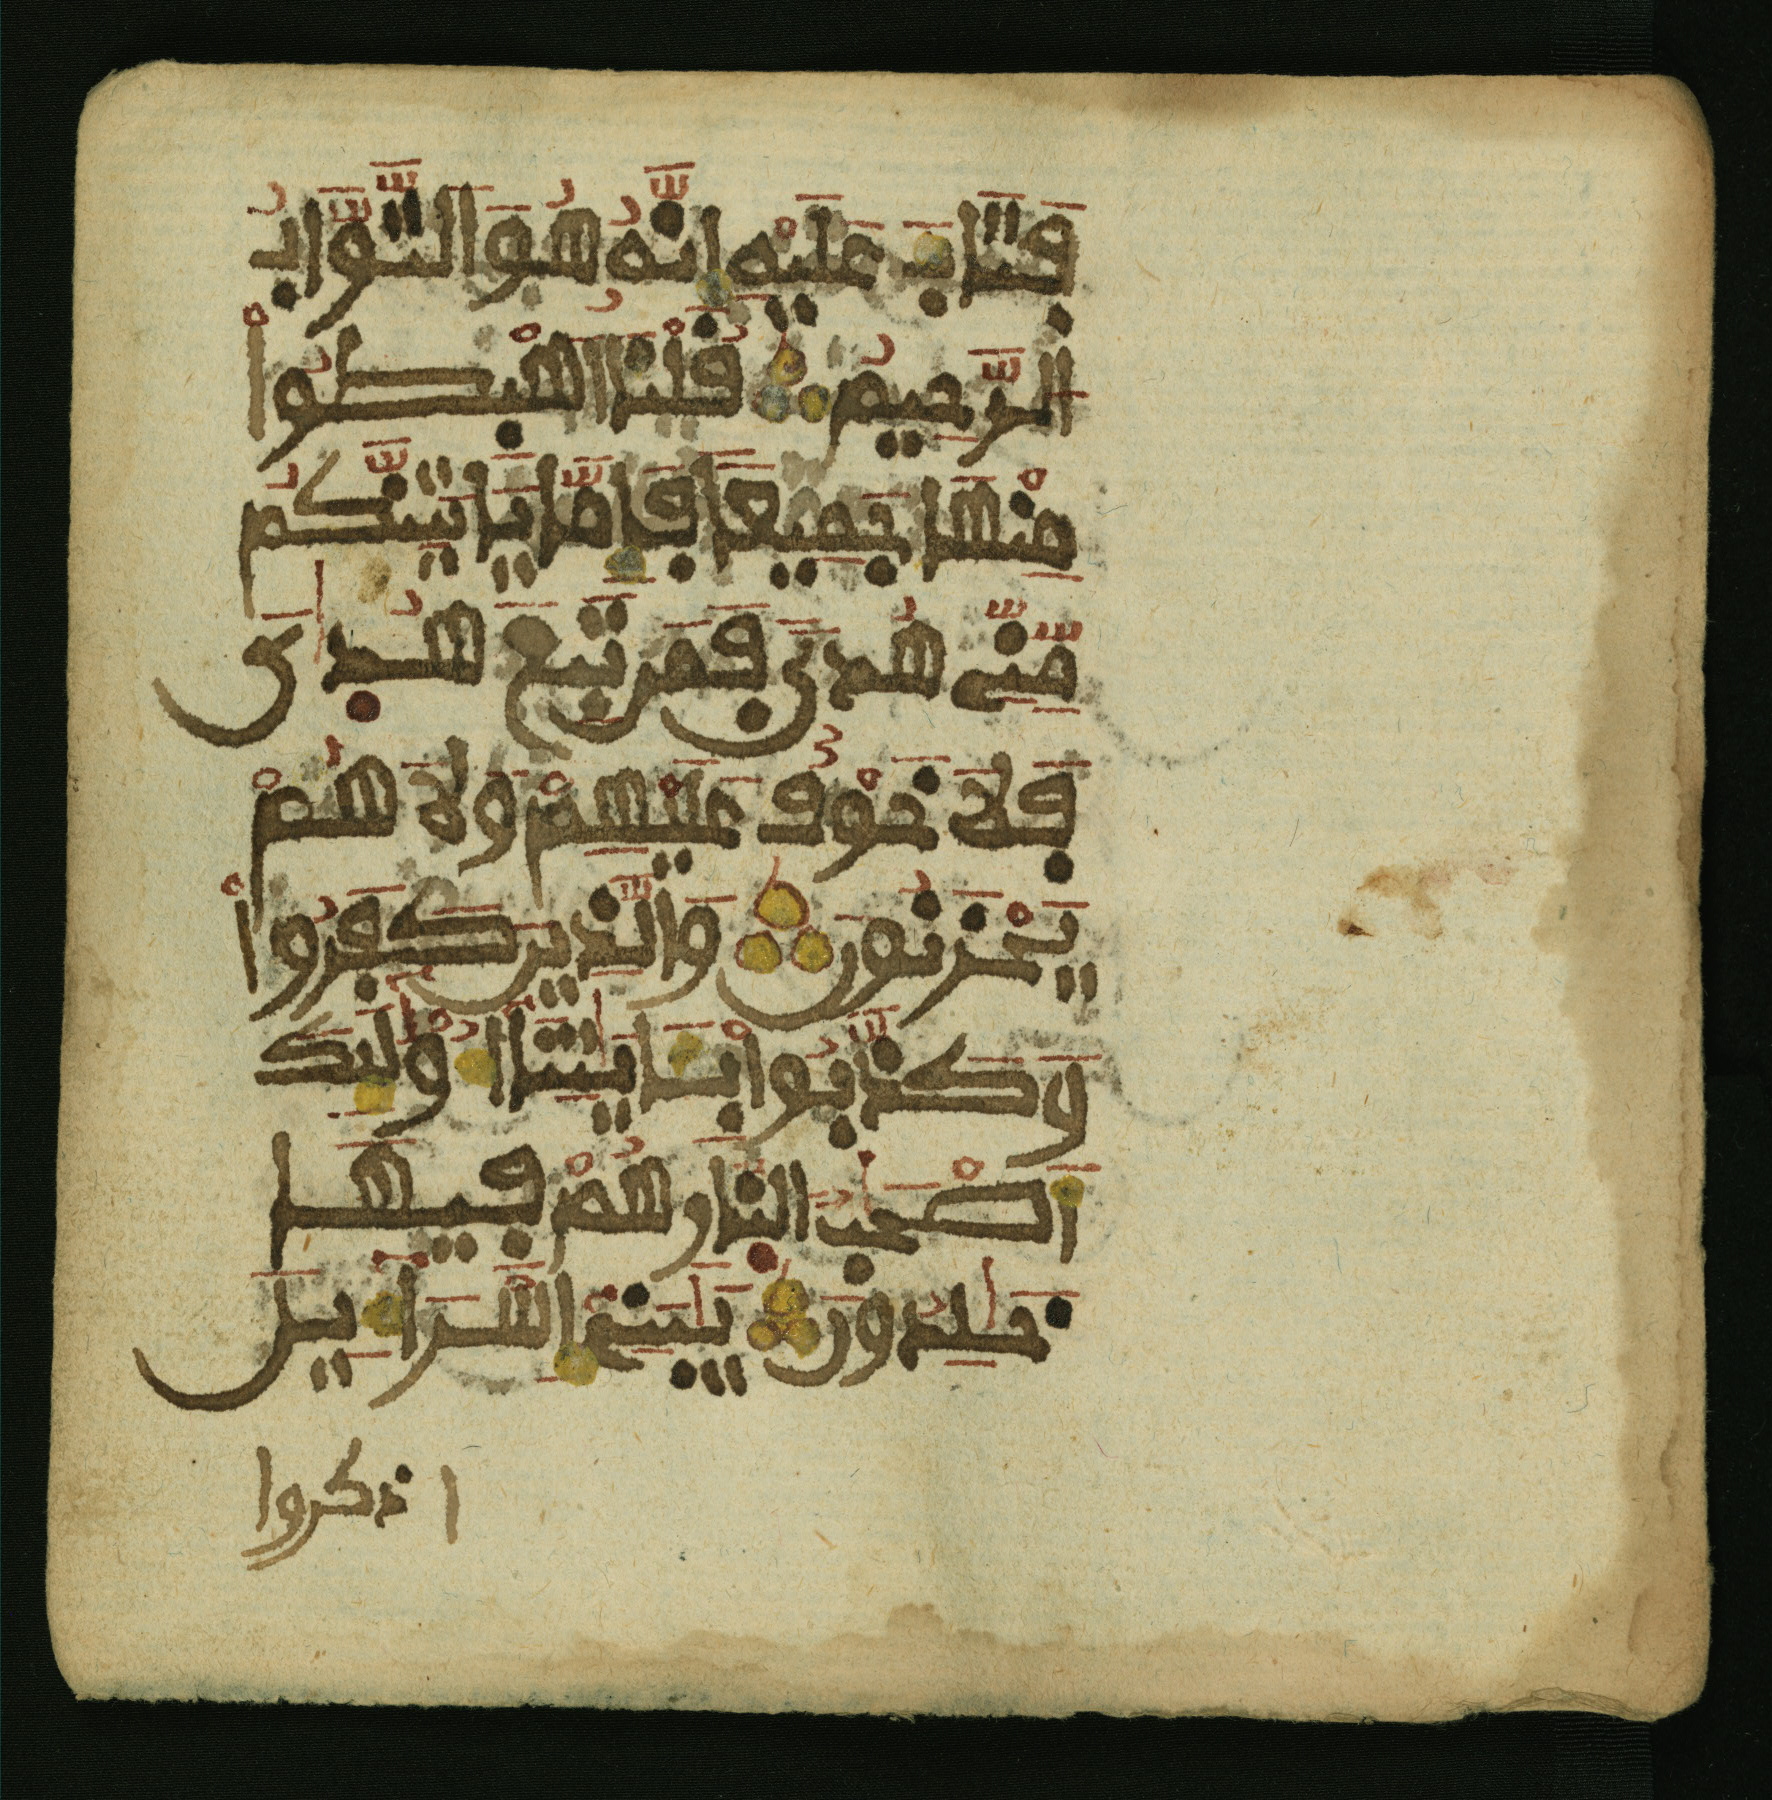 فَتَابَ عَلَيْهِ إِنَّهُ هُوَ التَّوَّابُ
الرَّحِيمُ قُلْنَا اهْبِطُوا
مِنْهَا جَمِيعًا فَإِمَّا يَأْتِيَنَّكُم
مِّنِّي هُدًى فَمَن تَبِعَ هُدَاىَ
فَلَا خَوْفٌ عَلَيْهِمْ وَلَا هُمْ
يَحْزَنُونَ وَالَّذِينَ كَفَرُوا
وَكَذَّبُوا بِـَٔايَٰتِنَا أُولَٰئِكَ
أَصْحَٰبُ النَّارِ هُمْ فِيهَا
خَٰلِدُونَ يَٰبَنِي إِسْرَآئِيلَ
اذكروا